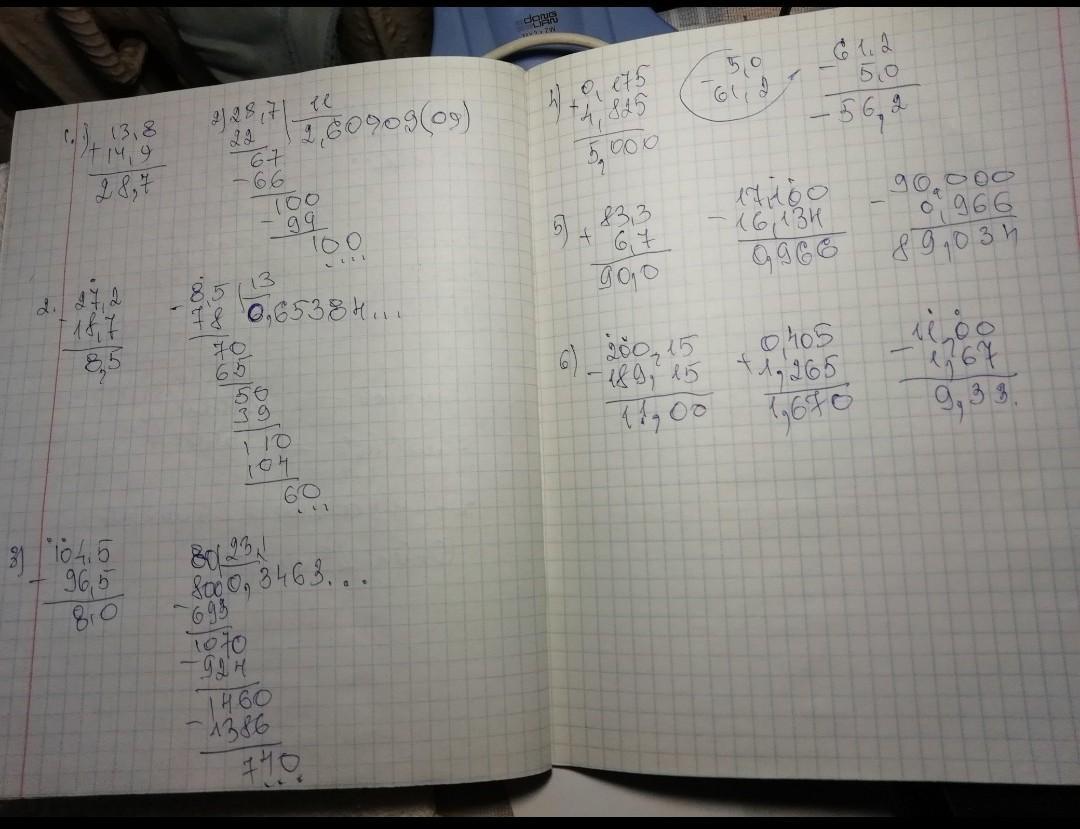 DONG
LIAN
1. 1) 13,8
+ 14,9
28,7
2) 28,7 | 11
22 2,60909(09)
67
- 66
100
- 99
100
....
2. - 27,2
18,7
8,5
- 8,5 | 13
78 0,65384...
70
65
50
39
110
104
60
...
3) - 104,5
96,5
8,0
80 | 23,1
800 0,3463...
- 693
1070
- 924
1460
- 1386
740
...
4) + 0,175
4,825
5,000
- 5,0
61,2
- 61,2
5,0
- 56,2
5) + 83,3
6,7
90,0
- 17,100
16,134
0,966
- 90,000
0,966
89,034
6) - 200,15
189,15
11,00
+ 0,405
1,265
1,670
- 11,00
1,67
9,33.